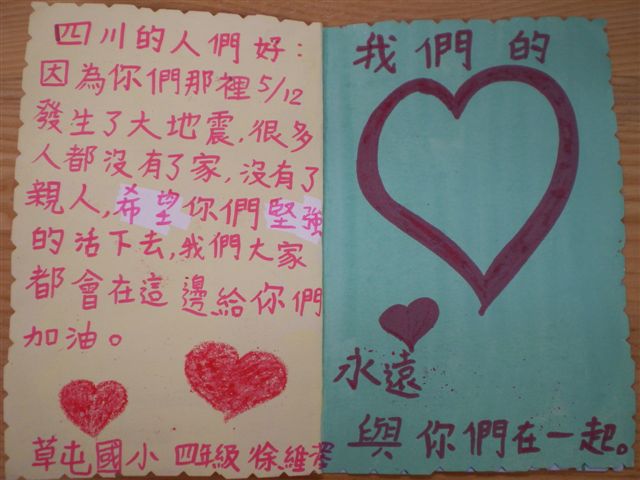 四川的人們好：
因為你們那裡5/12
發生了大地震,很多
人都沒有了家,沒有了
親人,希望你們堅強
的活下去,我們大家
都會在這邊給你們
加油。
草屯國小 四年級 徐維
我們的
永遠
與你們在一起。